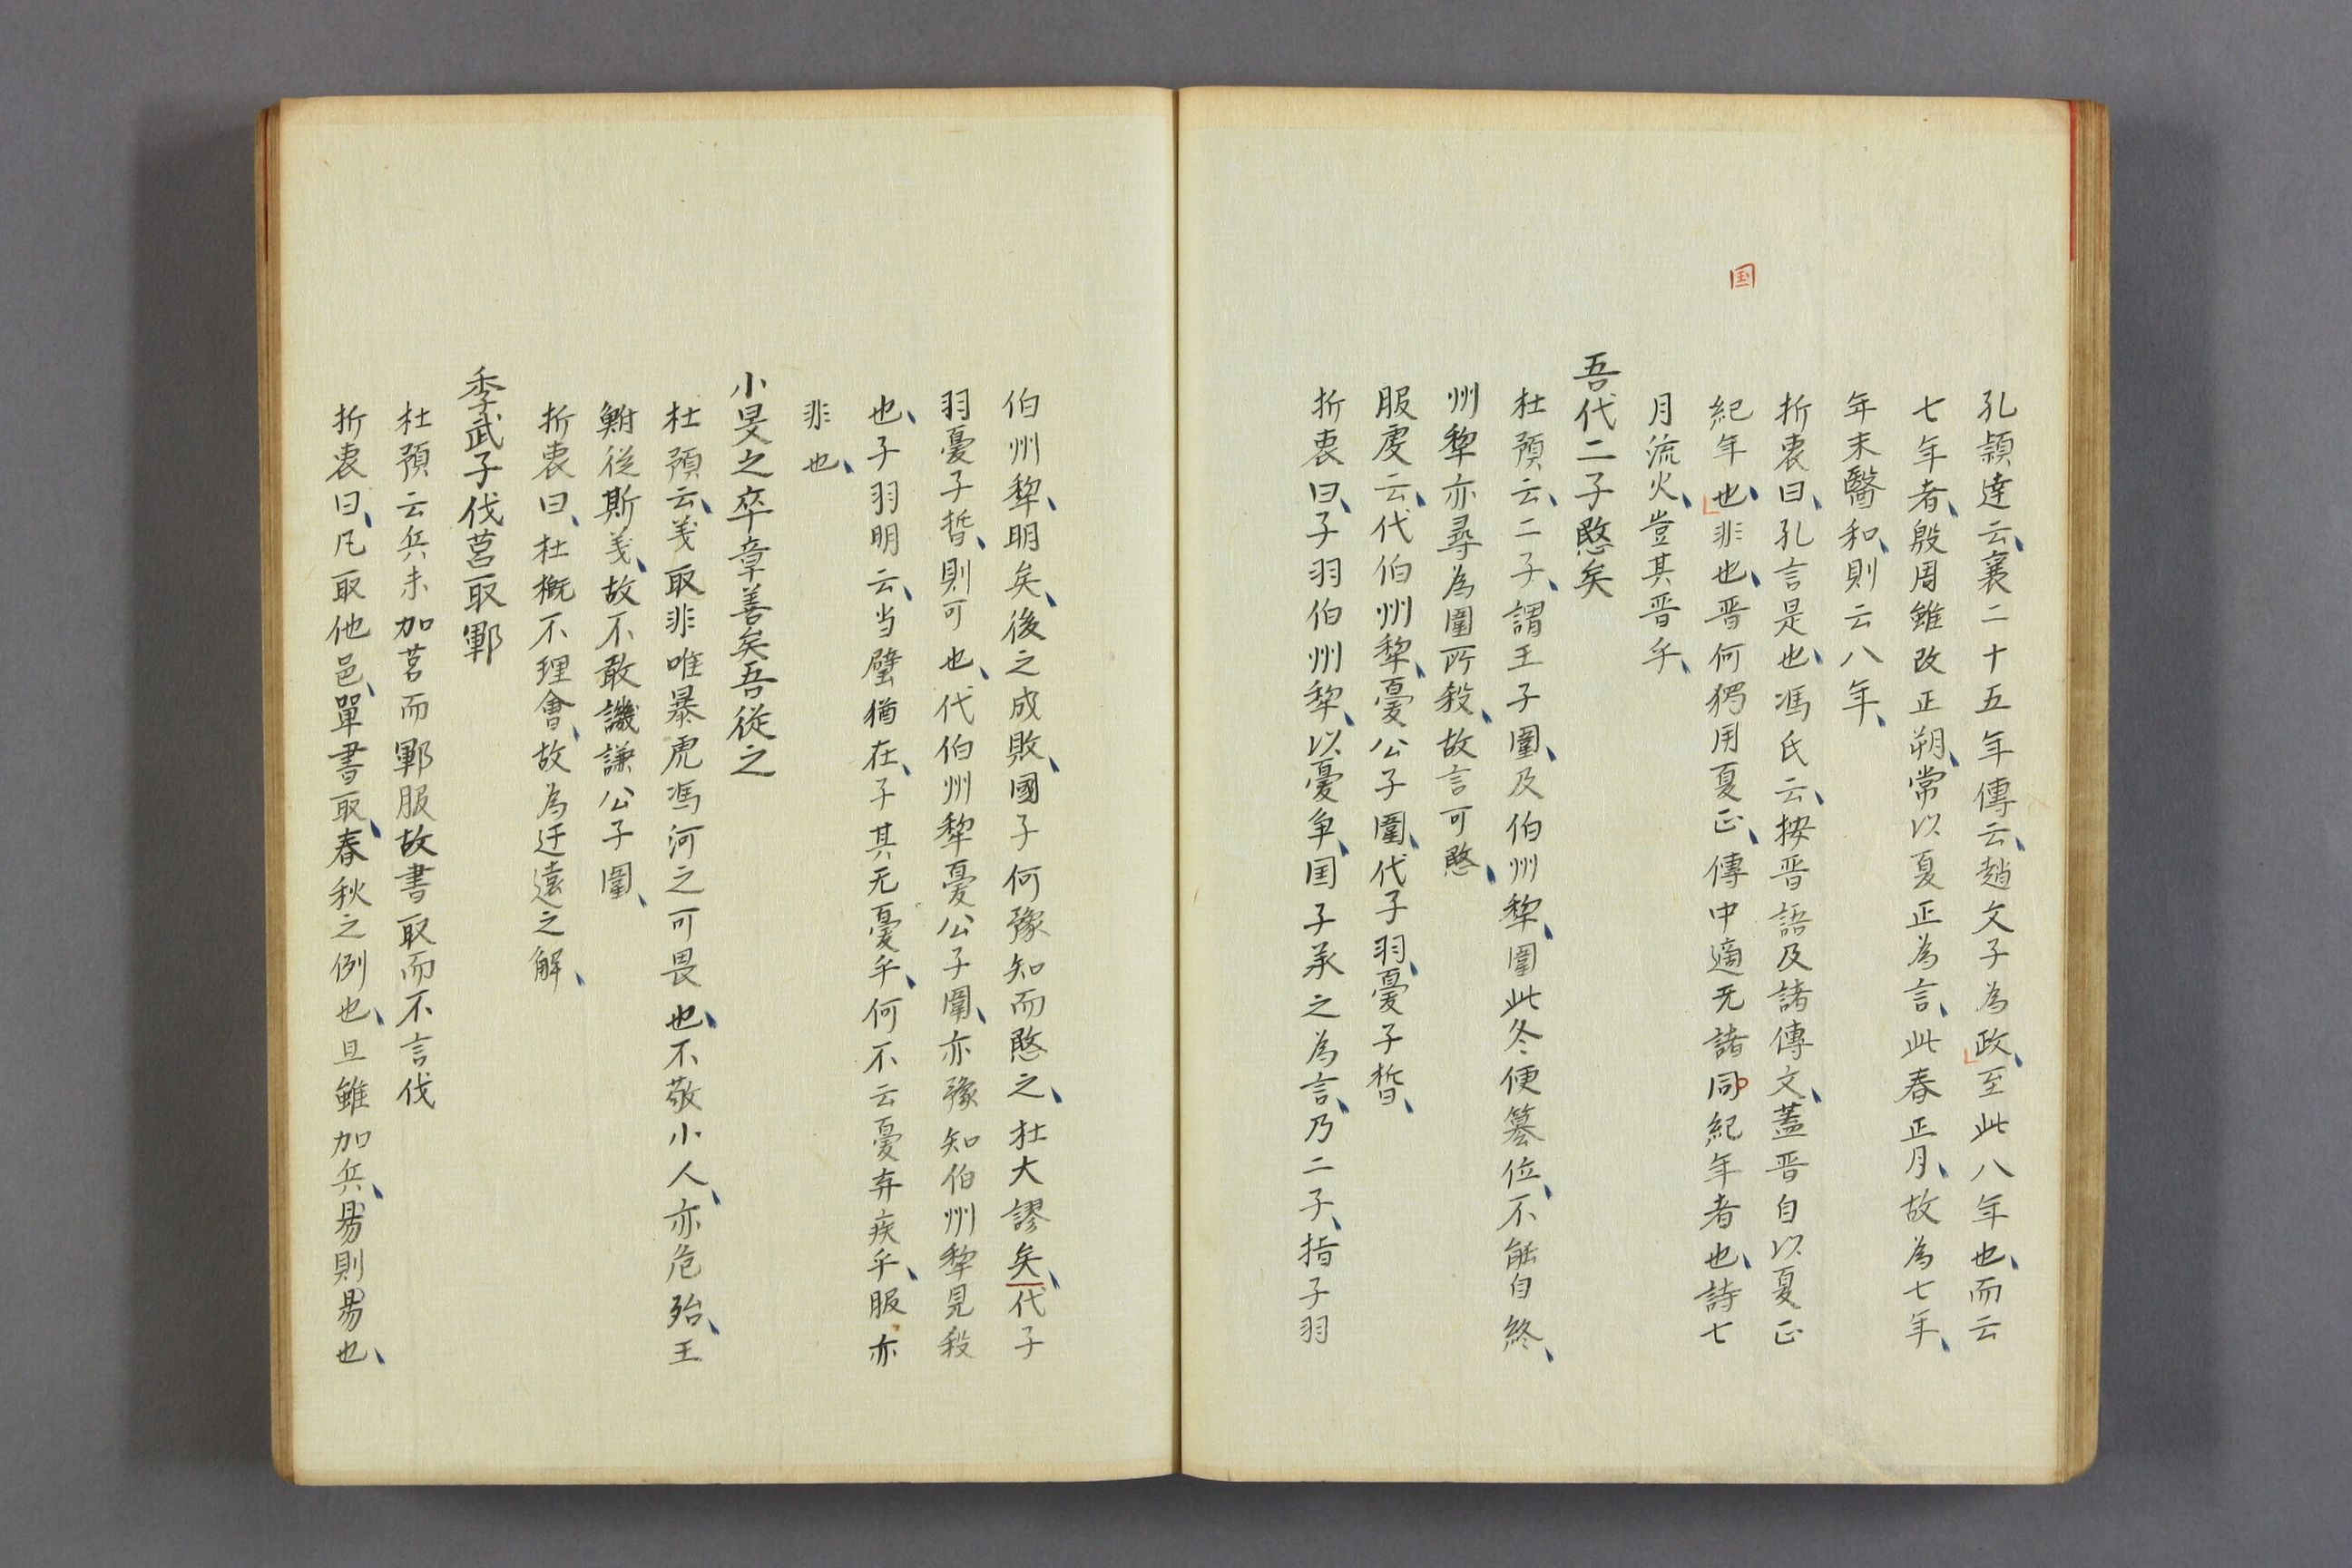 国
孔頴達云、襄二十五年傳云、趙文子為政、」至此八年也、而云
七年者、殷周雖改正朔、常以夏正為言、此春正月、故為七年、
年末醫和、則云八年、
折衷曰、孔言是也、馮氏云、按晋語及諸傳文、蓋晋自以夏正
紀年也、」非也、晋何猲用夏正、傳中適无諸同紀年者也、詩七
月流火、豈其晋乎、
吾代二子愍矣
杜預云、二子、謂王子圍、及伯州犂、圍此冬便簒位、不能自終、
州犂亦尋為圍所殺、故言可愍、
服虔云、代伯州犂、憂公子圍、代子羽、憂子晳、
折衷曰、子羽伯州犂、以憂争、国子承之為言、乃二子、指子羽
伯州犂、明矣、後之成敗、國子何豫知而愍之、杜大謬矣、代子
羽憂子晳、則可也、代伯州犂憂公子圍、亦豫知伯州犂見殺
也、子羽明云、当璧猶在、子其无憂乎、何不云憂弃疾乎、服亦
非也、
小旻之卒章善矣吾從之
杜預云、義取非唯暴虎馮河之可畏也、不敬小人、亦危殆、王
鮒從斯義、故不敢譏謙公子圍、
折衷曰、杜概不理會、故為迂遠之解、
季武子伐莒取鄆
杜預云兵未加莒而鄆服故書取而不言伐
折衷曰、凡取他邑、單書取、春秋之例也、且雖加兵、易則易也、